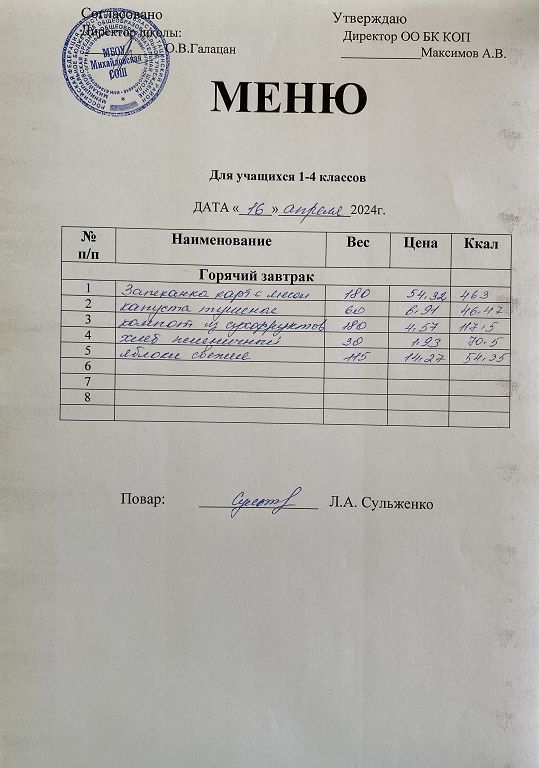 Согласовано Утверждаю
Директор школы: Директор ОО БК КОП
О.В.Галацан Максимов А.В.
МБОУ
Михайловская
СОШ
МЕНЮ
Для учащихся 1-4 классов
ДАТА « 16 » апреля 2024г.
№ п/п Наименование Вес Цена Ккал
Горячий завтрак
1 Запеканка карт с мясом 180 54,32 463
2 капуста тушеная 60 6.91 46.47
3 компот из сухофруктов 180 4.57 117.5
4 хлеб пшеничный 30 1.93 70.5
5 яблоки свежие 115 14.27 54.35
6
7
8
Повар: Л.А. Сульженко